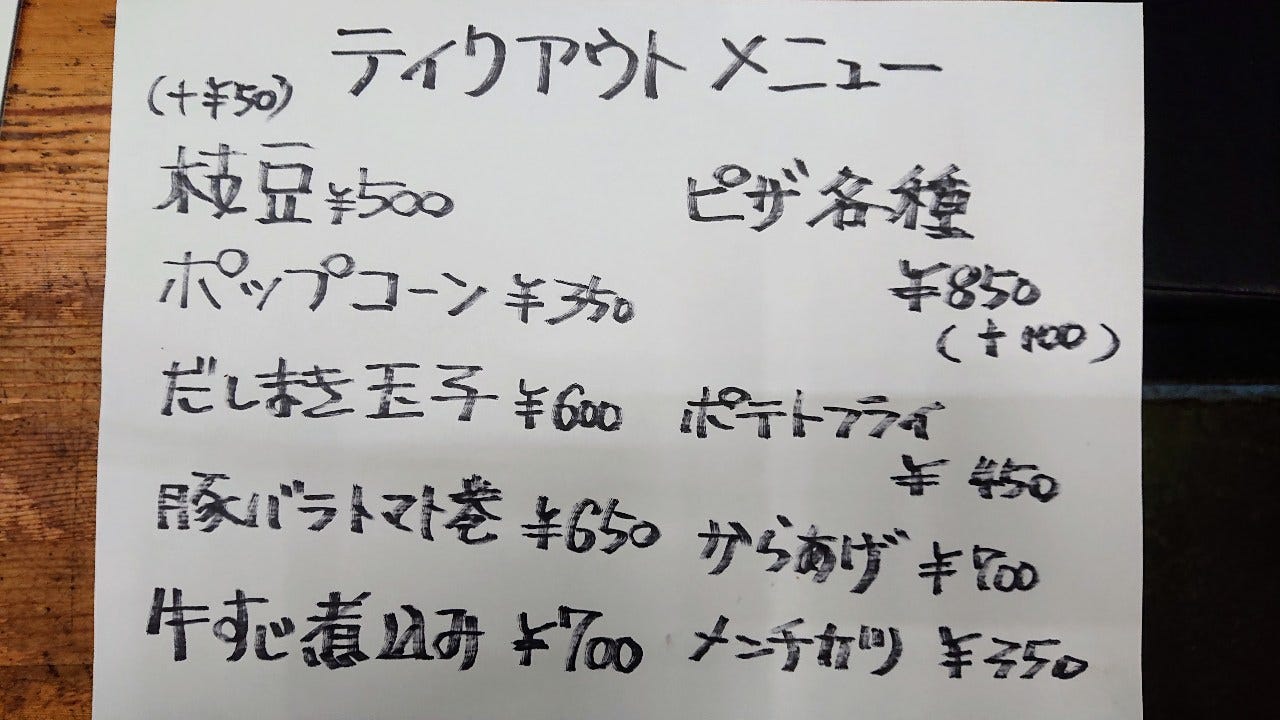 テイクアウト メニュー
(+¥50)
枝豆 ¥500
ポップコーン ¥350
だしまき玉子 ¥600
豚バラトマト巻 ¥650
牛すじ煮込み ¥700
ピザ各種
¥850
(+100)
ポテトフライ
¥450
からあげ ¥700
メンチカツ ¥350